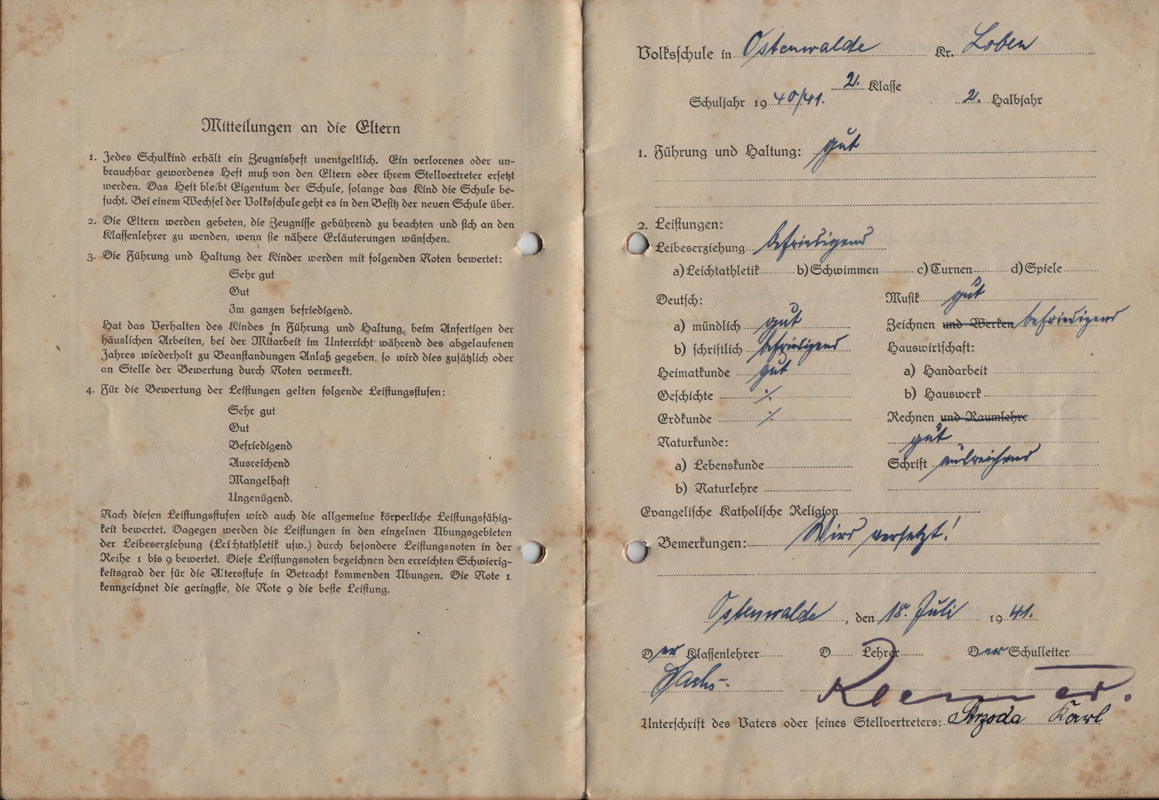 Mitteilungen an die Eltern
1. Jedes Schulkind erhält ein Zeugnisheft unentgeltlich. Ein verlorenes oder un-
brauchbar gewordenes Heft muß von den Eltern oder ihrem Stellvertreter ersetzt
werden. Das Heft bleibt Eigentum der Schule, solange das Kind die Schule be-
sucht. Bei einem Wechsel der Volksschule geht es in den Besitz der neuen Schule über.
2. Die Eltern werden gebeten, die Zeugnisse gebührend zu beachten und sich an den
Klassenlehrer zu wenden, wenn sie nähere Erläuterungen wünschen.
3. Die Führung und Haltung der Kinder werden mit folgenden Noten bewertet:
Sehr gut
Gut
Im ganzen befriedigend.
Hat das Verhalten des Kindes in Führung und Haltung, beim Anfertigen der
häuslichen Arbeiten, bei der Mitarbeit im Unterricht während des abgelaufenen
Jahres wiederholt zu Beanstandungen Anlaß gegeben, so wird dies zusätzlich oder
an Stelle der Bewertung durch Noten vermerkt.
4. Für die Bewertung der Leistungen gelten folgende Leistungsstufen:
Sehr gut
Gut
Befriedigend
Ausreichend
Mangelhaft
Ungenügend.
Nach diesen Leistungsstufen wird auch die allgemeine körperliche Leistungsfähig-
keit bewertet. Dagegen werden die Leistungen in den einzelnen Übungsgebieten
der Leibeserziehung (Leichtathletik usw.) durch besondere Leistungsnoten in der
Reihe 1 bis 9 bewertet. Diese Leistungsnoten bezeichnen den erreichten Schwierig-
keitsgrad der für die Altersstufe in Betracht kommenden Übungen. Die Note 1
kennzeichnet die geringste, die Note 9 die beste Leistung.
Volksschule in Ostenwalde Kr. Loben
2. Klasse
Schuljahr 1940/41. 2. Halbjahr
1. Führung und Haltung: gut
2. Leistungen:
Leibeserziehung befriedigend
a) Leichtathletik b) Schwimmen c) Turnen d) Spiele
Deutsch: Musik gut
a) mündlich gut Zeichnen und Werken befriedigend
b) schriftlich befriedigend Hauswirtschaft:
Heimatkunde gut a) Handarbeit
Geschichte ./. b) Hauswerk
Erdkunde ./. Rechnen und Raumlehre
Naturkunde: gut
a) Lebenskunde Schrift ausreichend
b) Naturlehre
Evangelische Katholische Religion
Bemerkungen: Wird versetzt!
Ostenwalde, den 18. Juli 1941.
Der Klassenlehrer D Lehrer Der Schulleiter
Unterschrift des Vaters oder seines Stellvertreters: Strzoda Karl